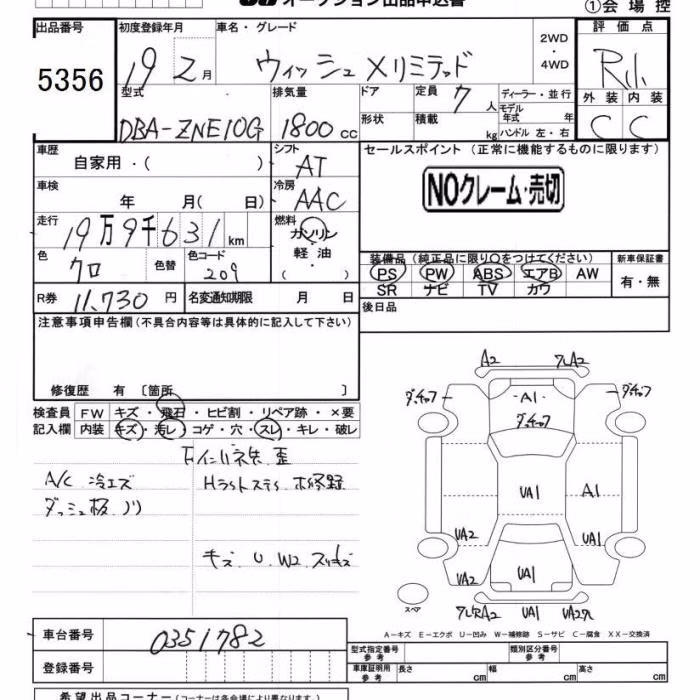 オークション出品申込書
①会場控
出品番号 初度登録年月 車名・グレード 評価点
5356 19 2月 ウィッシュ Xリミテッド 2WD・4WD
型式 排気量 ドア 定員 7人 ディーラー・並行 モデル年式 年 外装 内装
DBA-ZNE10G 1800cc 形状 積載 kg ハンドル 左・右 C C
車歴 シフト セールスポイント(正常に機能するものに限ります)
自家用・( ) AT
車検 冷房 NOクレーム・売切
年 月(日) AAC
走行 19万9千631km 燃料 ガソリン
色 色替 色コード 軽油 装備品(純正品に限り〇をつけてください) 新車保証書
クロ 209 ( ) PS PW ABS エアB AW 有・無
SR ナビ TV カワ
R券 11,730円 名変通知期限 月 日 後日品
注意事項申告欄(不具合内容等は具体的に記入して下さい)
修復歴 有 〔箇所 〕
検査員 FW キズ・飛石・ヒビ割・リペア跡・×要
記入欄 内装 キズ・汚レ・コゲ・穴・スレ・キレ・破レ
A/C 冷エズ
A2
A1
UA1 A1
UA2 UA1
UA2 UA1
UA1
スペア
A-キズ E-エクボ U-凹み W-補修跡 S-サビ C-腐食 XX-交換済
車台番号 0351782 型式指定番号 参考 類別区分番号 参考
登録番号 車庫証明用 参考 長さ cm 幅 cm 高さ cm
希望出品コーナー(コーナーは各会場により異なります。)